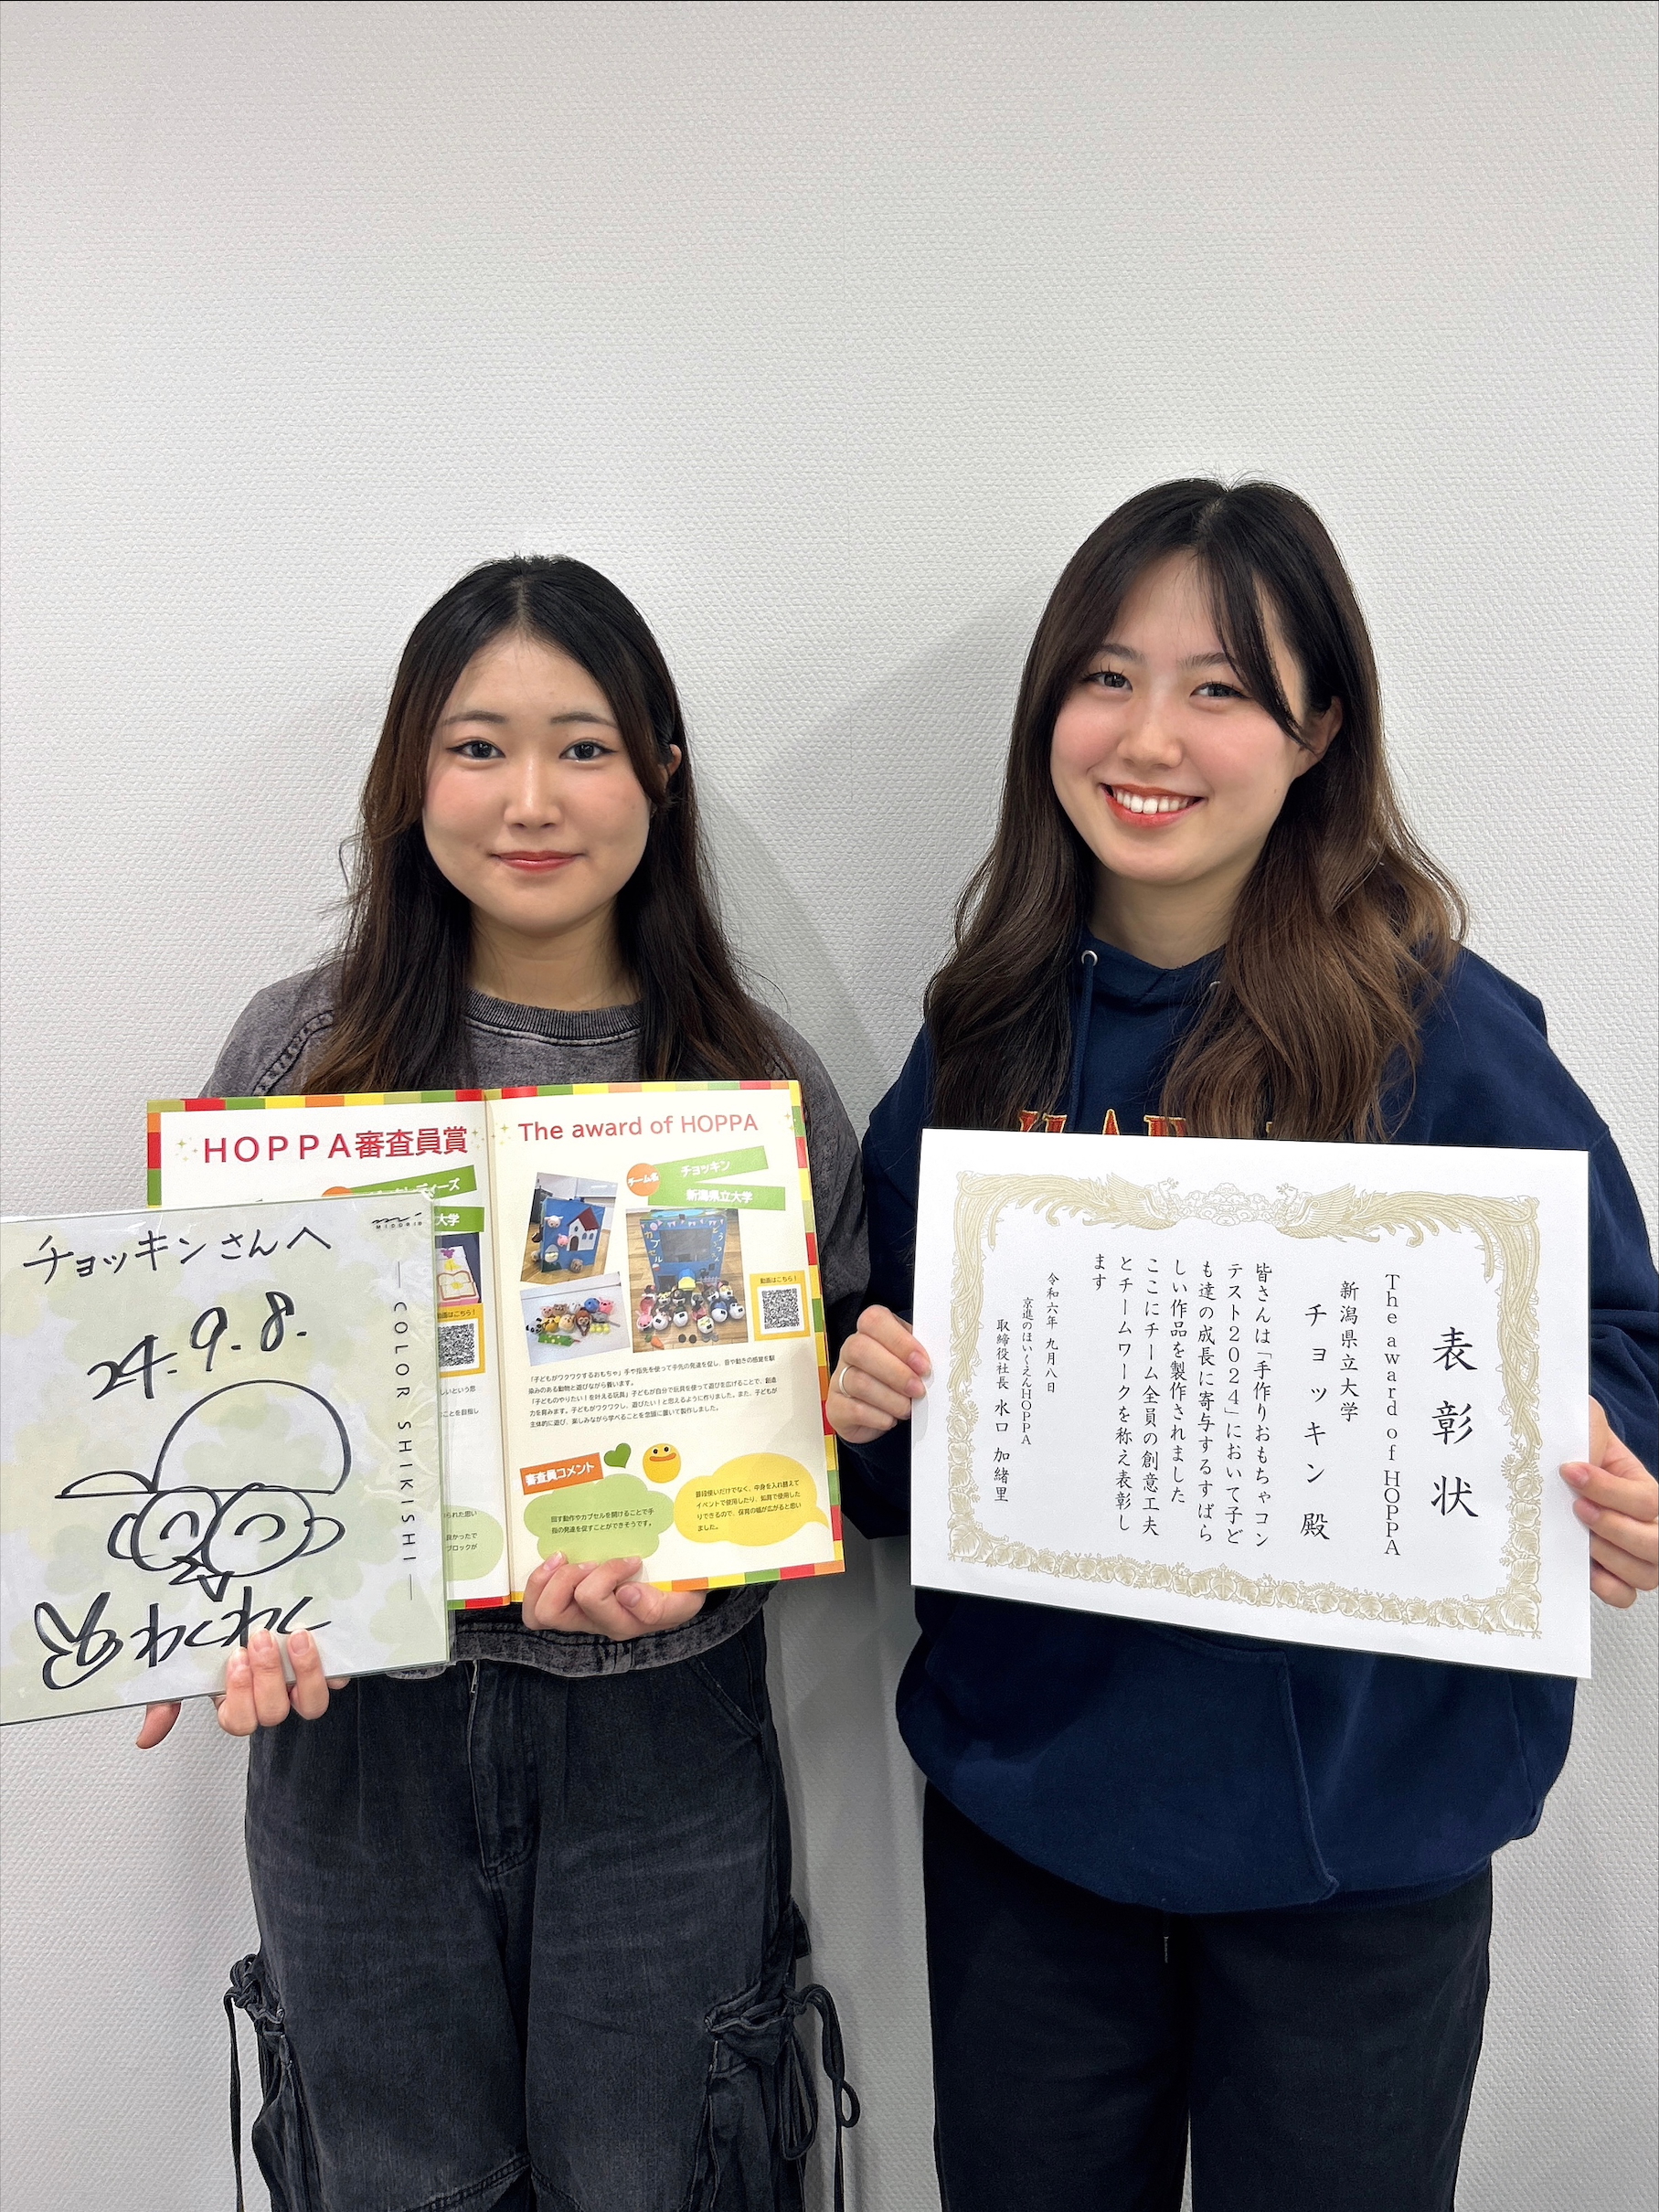 チョッキンさんへ
24.9.8.
MIDORI
COLOR SHIKISHI
HOPPA審査員賞
ディーズ
大学
動画はこちら!
The award of HOPPA
チーム名
チョッキン
新潟県立大学
動画はこちら!
「子どもがワクワクするおもちゃ」手や指先を使って手先の発達を促し、音や動きの感覚を馴
染みのある動物と遊びながら養います。
「子どものやりたい!を叶える玩具」子どもが自分で玩具を使って遊びを広げることで、創造
力を育みます。子どもがワクワクし、遊びたい!と思えるように作りました。また、子どもが
主体的に遊び、楽しみながら学べることを念頭に置いて製作しました。
審査員コメント
回す動作やカプセルを開けることで手
指の発達を促すことができそうです。
普段使いだけでなく、中身を入れ替えて
イベントで使用したり、知育で使用した
りできるので、保育の幅が広がると思い
ました。
表彰状
The award of HOPPA
新潟県立大学
チョッキン 殿
皆さんは「手作りおもちゃコン
テスト2024」において子ど
も達の成長に寄与するすばら
しい作品を製作されました
ここにチーム全員の創意工夫
とチームワークを称え表彰し
ます
令和六年 九月八日
京進のほいくえんHOPPA
取締役社長 水口 加緒里